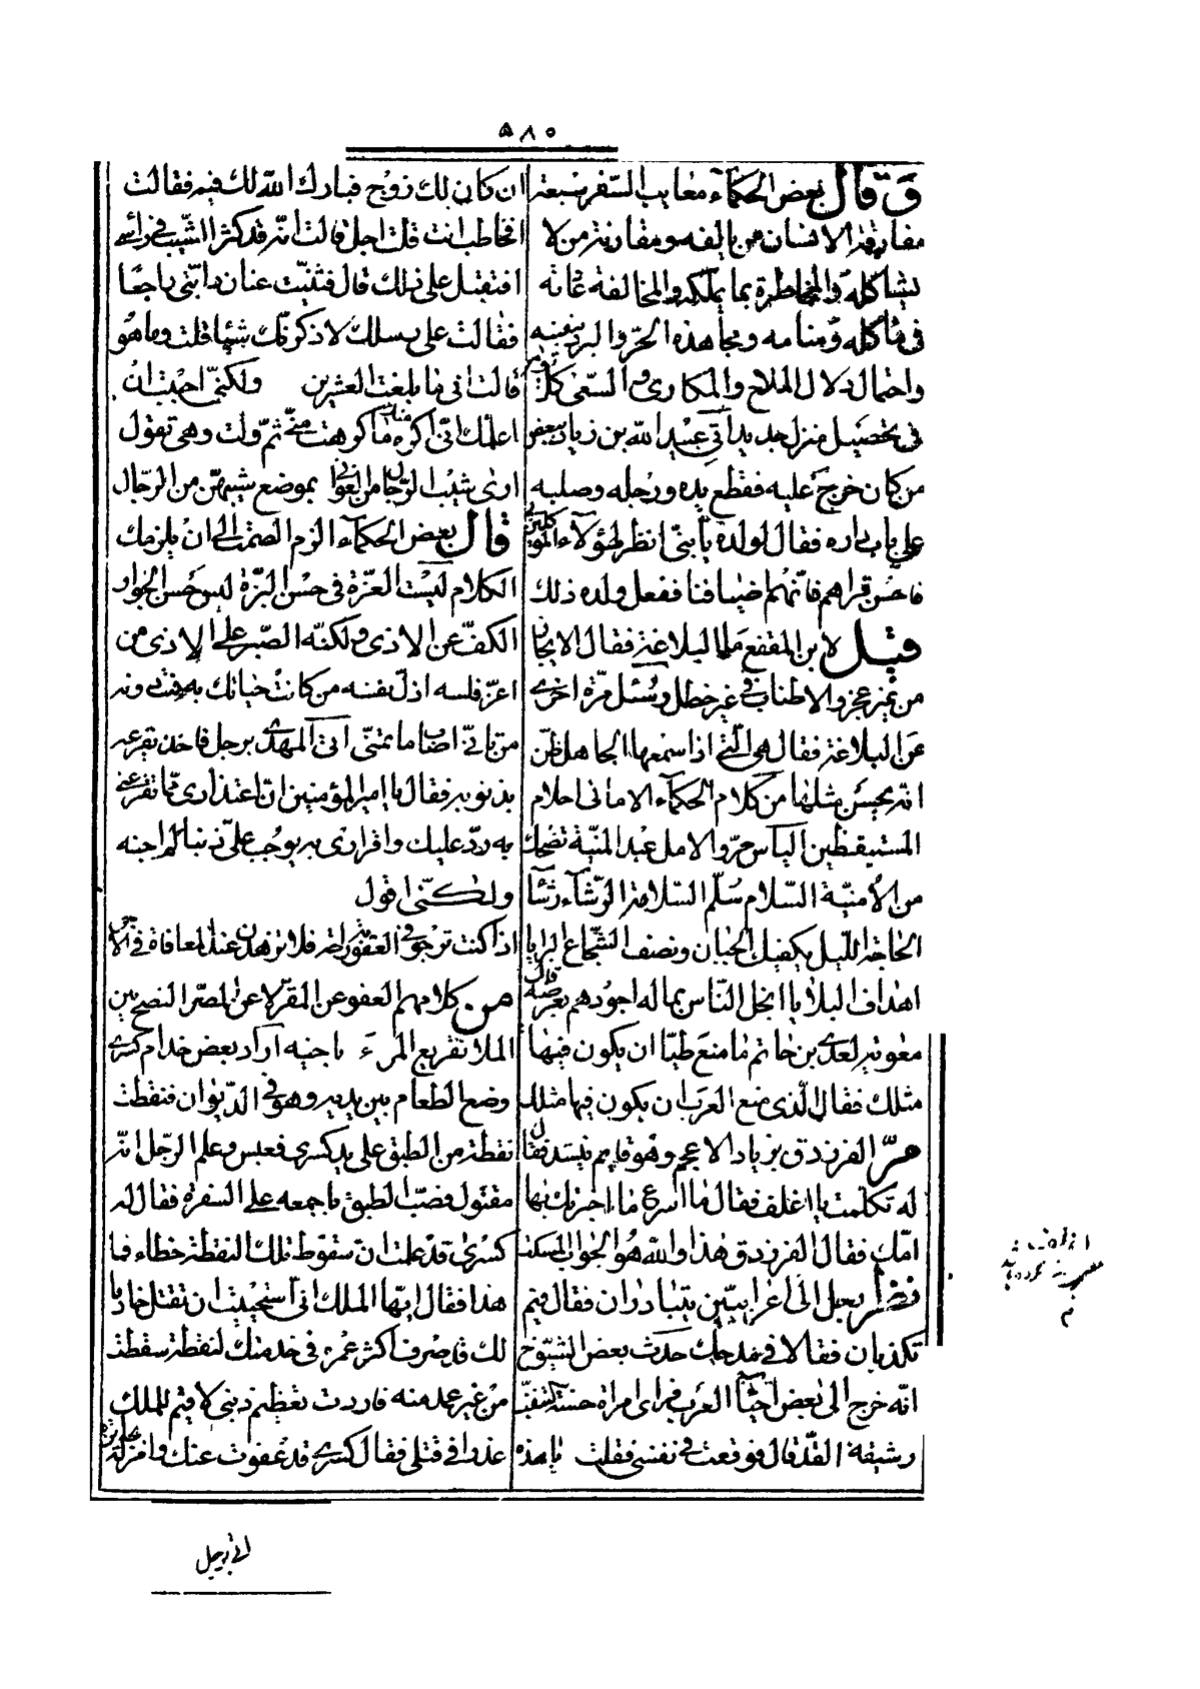 ٥٨٥
وقال بعض الحكماء معايب السفر سبعة
مفارقة الانسان من يالفه ومقارنة من لا
يشاكله والمخاطرة بما يملكه والمخالفة عاته
فى ماكله ومنامه ومجاهدة الحر والبرد بنفسه
واحتمال دلال الملاح والمكارى والسعى كل يوم
فى تحصيل منزل جديد اتى عبيد الله بن زياد ببعض
من كان خرج عليه فقطع يده ورجله وصلبه
على باب داره فقال لولده يا بنى انظر لهؤلاء الموكلين
فاحسن قراهم فانهم اضيافنا ففعل ولده ذلك
قيل لابن المقفع ما البلاغة فقال الايجاز
من غير عجز والاطناب فى غير خطل وسئل مرة اخرى
عن البلاغة فقال هى التى اذا سمعها الجاهل ظن
انه يحسن مثلها من كلام الحكماء الامانى احلام
المستيقظين الياس حر والامل عبد المنية تضحك
من الأمنية السلام سلم السلامة الرشاء رشآ
الحاجة الليل يكفيك الجبان ونصف الشجاع البرايا
اهداف البلايا ابخل الناس بماله اجودهم بعرضه قال
معوية لعدى بن حاتم ما منع طيا ان يكون فيها
مثلك فقال الذى منع العرب ان يكون فيها مثلك
مر الفرزدق بزياد الاعجم وهو قايم ينشد فقال
له تكلمت يا اغلف فقال ما اسرع ما اخبرتك بها
امك فقال الفرزدق هذا والله هو الجواب المسكت
نظر رجل الى اعرابيين يتبادران فقال فيم
تكذبان فقالا فى مدحك حدث بعض الشيوخ
انه خرج الى بعض احياء العرب فراى امراة حسنة
رشيقة القد قال فوقعت فى نفسى فقلت يا هذه
ان كان لك زوج فبارك الله لك فيه فقالت
اتخاطب انت قلت اجل قالت انه قد كثر الشيب فى راسى
افتقبل على ذلك قال فثنيت عنان دابتى راجعا
فقالت على رسلك لاذكرنك شيئا قلت وما هو
قالت انى ما بلغت العشرين ولكنى احببت ان
اعلمك انى اكره منك ما كرهت منى ثم ولت وهى تقول
ارى شيب الرجال من الغوانى بموضع شيبهن من الرجال
قال بعض الحكماء الزم الصمت الى ان يلزمك
الكلام ليست العزة فى حسن البزة ليس حسن الجوار
الكف عن الاذى ولكنه الصبر على الاذى من
اعز فلسه اذل نفسه من كانت حياتك به
من تانى اصاب ما تمنى اتى المهدى برجل فاخذ يقرعه
بذنوبه فقال يا امير المؤمنين ان اعتذارى مما تقرعنى
به رد عليك واقرارى به يوجب على ذنبا لم اجنه
ولكنى اقول
اذا كنت ترجو فى العقوبة راحة فلا تزهدن عند المعافاة فى الاجر
من كلامهم العفو عن المقر لا عن المصر النصح بين
الملا تقريع المرء ياجنيه اراد بعض خدام كسرى
وضع الطعام بين يديه وهو فى الديوان فنقطت
نقطة من الطبق على يد كسرى فعبس وعلم الرجل انه
مقتول فصب الطبق باجمعه على السفرة فقال له
كسرى قد علمت ان سقوط تلك النقطة خطاء فما
هذا فقال ايها الملك انى استحييت ان تقتل خادما
لك قد صرف اكثر عمره فى خدمتك لنقطة سقطت
من غير عمد منه فاردت تعظيم ذنبى لاقيم للملك
عذرا فى قتلى فقال كسرى قد عفوت عنك
اتى برجل